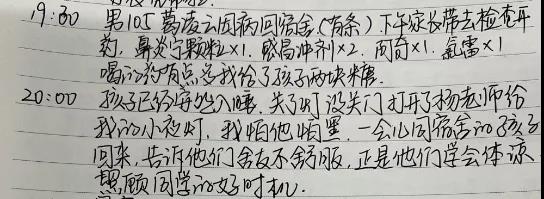 19:30 男105 葛凌云因病回宿舍(有条)下午家长带去检查开
药,鼻炎宁颗粒×1.感冒冲剂×2.阿奇×1.氨雷×1
喝的药有点多我给了孩子两块糖.
20:00 孩子已经安然入睡.关了灯没关门打开了杨老师给
我的小夜灯,我怕他怕黑.一会儿同宿舍的孩子
回来,告诉他们舍友不舒服,正是他们学会体谅
照顾同学的好时机.